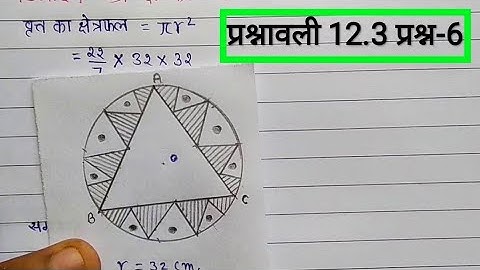 वृत्त का क्षेत्रफल = πr²
= 22/7 × 32 × 32
प्रश्नावली 12.3 प्रश्न-6
A
O
B
C
r = 32 cm.